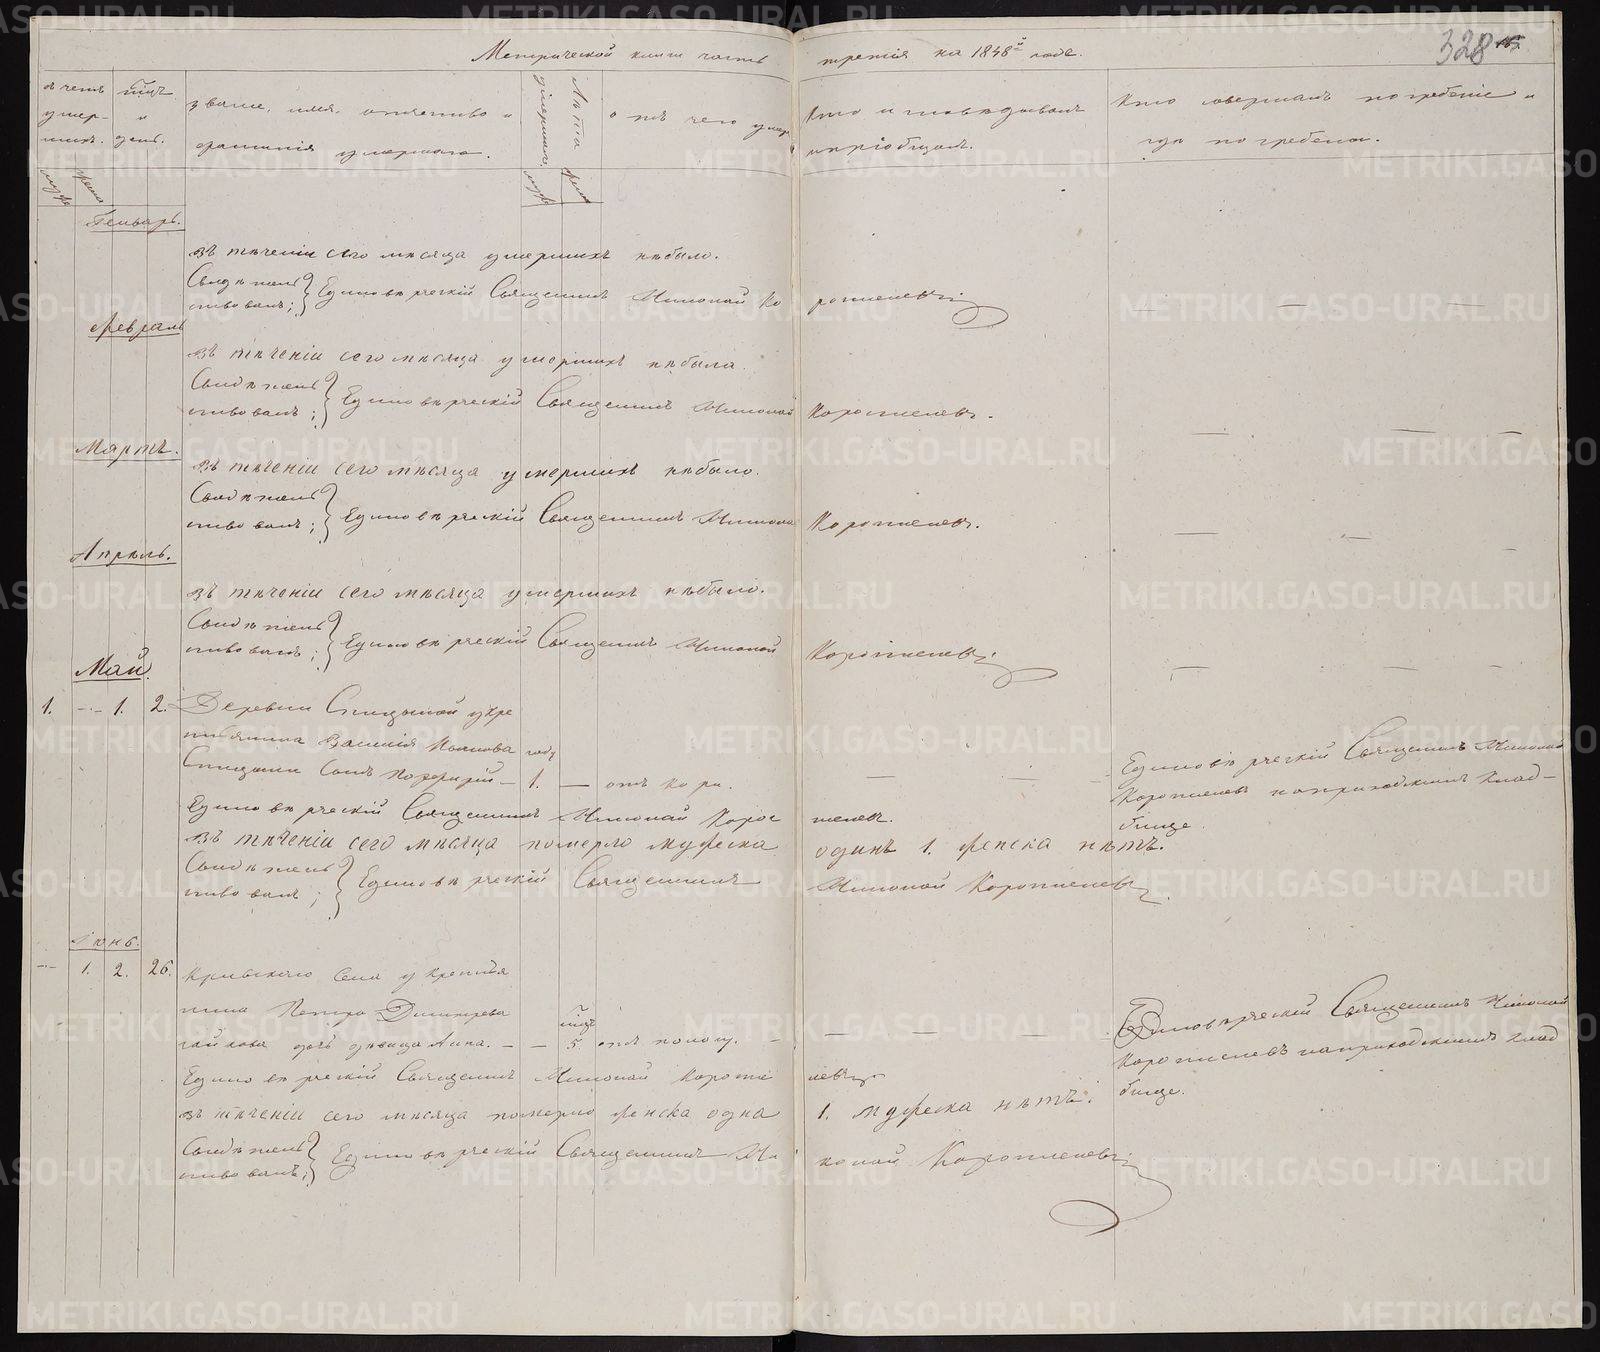 Метрической книги часть третія на 1848й годъ.
328
счетъ умер- шихъ.
мцъ и день.
званіе, имя, отчество и фамилія умершаго.
Лѣта умершаго
отъ чего умеръ
Кто исповѣдывалъ и пріобщалъ.
Кто совершалъ погребеніе и гдѣ погребены.
муж. женск.
муж. женск.
Генварь.
въ тѣченіи сего мѣсяца умершихъ нѣбыло.
Свидѣтель ствовалъ; Единовѣрческій Священникъ Николай Ко ропчелевъ
Февраль
въ тѣченіи сего мѣсяца умершихъ нѣбыла.
Свидѣтель ствовалъ; Единовѣрческій Священникъ Николай Коропчелевъ.
Мартъ.
въ тѣченіи сего мѣсяца умершихъ нѣбыло.
Свидѣтель ствовалъ; Единовѣрческій Священникъ Николай Коропчелевъ.
Апрѣль.
въ тѣченіи сего мѣсяца умершихъ нѣбыло.
Свидѣтель ствовалъ; Единовѣрческій Священникъ Николай Коропчелевъ
Май.
1. — 1. 2. Деревни Спицыной у кре
стьянина Василія году
Спицына Сынъ Порфирій — 1. — отъ кори.
Единовѣрческій Священникъ Николай
Коропчелевъ наприходскимъ клад-
бище.
Единовѣрческій Священникъ Николай Короп челевъ.
въ тѣченіи сего мѣсяца померло мужеска одинъ 1. женска нѣтъ.
Свидѣтель ствовалъ; Единовѣрческій Священникъ Николай Коропчелевъ
Іюнь.
— 1. 2. 26. Села у крестья
нина Петра Димитрева мцъ
дочь дѣвица Анна. — — 5 отъ поносу.
Единовѣрческій Священникъ Николай
Коропчелевъ наприходскимъ клад
бище.
Единовѣрческій Священникъ Николай Коропче левъ
въ тѣченіи сего мѣсяца померло женска одна 1. мужеска нѣтъ.
Свидѣтель ствовалъ; Единовѣрческій Священникъ Ни колай Коропчелевъ
METRIKI.GASO-URAL.RU